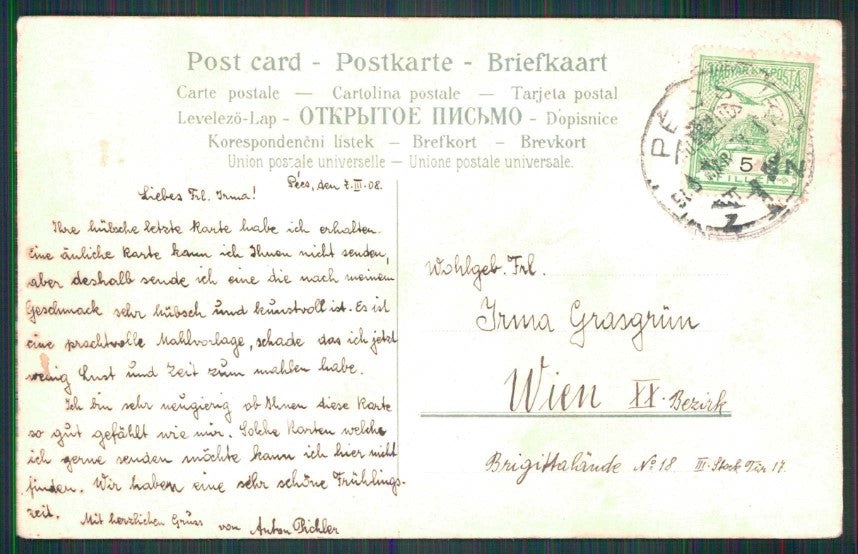 Post card - Postkarte - Briefkaart
Carte postale — Cartolina postale — Tarjeta postal
Levelező-Lap - ОТКРЫТОЕ ПИСЬМО - Dopisnice
Korespondenční listek — Brefkort — Brevkort
Union postale universelle — Unione postale universale.
MAGYAR KIR. POSTA
5
PÉCS
Pécs, den 7.III.08.
Liebes Frl. Irma!
Ihre hübsche letzte Karte habe ich erhalten.
Eine änliche Karte kann ich Ihnen nicht senden,
aber deshalb sende ich eine die nach meinem
Geschmack sehr hübsch und kunstvoll ist. Es ist
eine prachtvolle Mahlvorlage, schade das ich jetzt
wenig Lust und Zeit zum mahlen habe.
Ich bin sehr neugierig ob Ihnen diese Karte
so gut gefählt wie mir. Solche Karten welche
ich gerne senden möchte kann ich hier nicht
finden. Wir haben eine sehr schöne Frühlings-
zeit. Mit herzlichen Gruss von Anton Pichler
Wohlgeb. Frl.
Irma Grasgrün
Wien XX. Bezirk
Brigittalände No 18. III. Stock Tür 17.